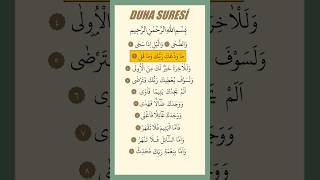 DUHA SURESİ
بِسْمِ اللّٰهِ الرَّحْمٰنِ الرَّحِيمِ
وَالضُّحٰى ۝١ وَالَّيْلِ اِذَا سَجٰى ۝٢
مَا وَدَّعَكَ رَبُّكَ وَمَا قَلٰى ۝٣
وَلَلْاٰخِرَةُ خَيْرٌ لَكَ مِنَ الْاُولٰى ۝٤
وَلَسَوْفَ يُعْطِيكَ رَبُّكَ فَتَرْضٰى ۝٥
اَلَمْ يَجِدْكَ يَتِيمًا فَاٰوٰى ۝٦
وَوَجَدَكَ ضَٓالًّا فَهَدٰى ۝٧
وَوَجَدَكَ عَٓائِلًا فَاَغْنٰى ۝٨
فَاَمَّا الْيَتِيمَ فَلَا تَقْهَرْ ۝٩
وَاَمَّا السَّٓائِلَ فَلَا تَنْهَرْ ۝١٠
وَاَمَّا بِنِعْمَةِ رَبِّكَ فَحَدِّثْ ۝١١